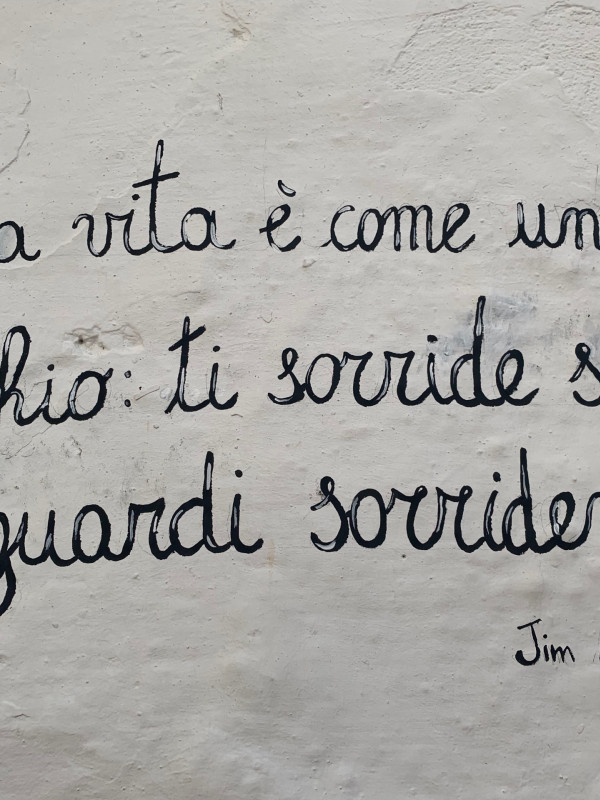 a vita è come un
hio: ti sorride s
guardi sorrider
Jim